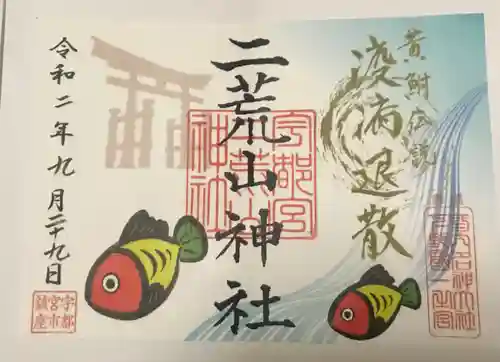 黄鮒伝説
疫病退散
二荒山神社
宇都宮
二荒山
神社
令和二年九月二十九日
宇都
宮市
鎮座